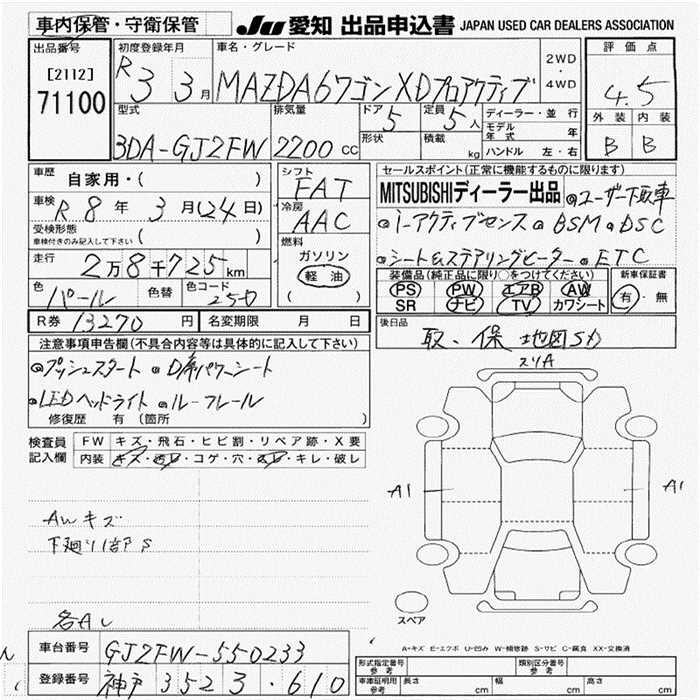 車内保管・守衛保管
JU 愛知 出品申込書 JAPAN USED CAR DEALERS ASSOCIATION
出品番号
[2112]
71100
初度登録年月
R3 3月
車名・グレード
MAZDA6ワゴン XDプロアクティブ
2WD
・
4WD
評価点
4.5
外装 内装
B B
型式
3DA-GJ2FW
排気量
2200 cc
ドア 5
形状
定員 5人
積載 kg
ディーラー・並行
モデル年式 年
ハンドル 左・右
車歴
自家用・( )
車検 R8年 3月(24日)
受検形態
車検付きのみ記入して下さい ( )
走行 2万8千725km
色 パール 色替 色コード 25D
シフト
FAT
冷房
AAC
燃料
ガソリン
軽油
( )
セールスポイント(正常に機能するものに限ります)
MITSUBISHIディーラー出品 @ユーザー下取車
@i-アクティブセンス @BSM @DSC
@シート&ステアリングヒーター @ETC
装備品(純正品に限り○をつけてください)
PS PW エアB AW
SR ナビ TV カワシート
新車保証書
有・無
R券 13270円 名変期限 月 日
後日品
取・保 地図SD
スリA
注意事項申告欄(不具合内容等は具体的に記入して下さい)
@プッシュスタート @D席パワーシート
@LEDヘッドライト @ルーフレール
修復歴 有(箇所 )
検査員記入欄
FW キズ・飛石・ヒビ割・リペア跡・X要
内装 キズ・汚レ・コゲ・穴・スレ・キレ・破レ
AWキズ
下廻り1部S
A1 A1
スペア
A=キズ E=エクボ U=凹み W=補修跡 S=サビ C=腐食 XX=交換済
車台番号 GJ2FW-550233
登録番号 神戸 352 3・610
形式指定番号 参考
類別区分番号 参考
車庫証明用 参考 長さ cm 幅 cm 高さ cm